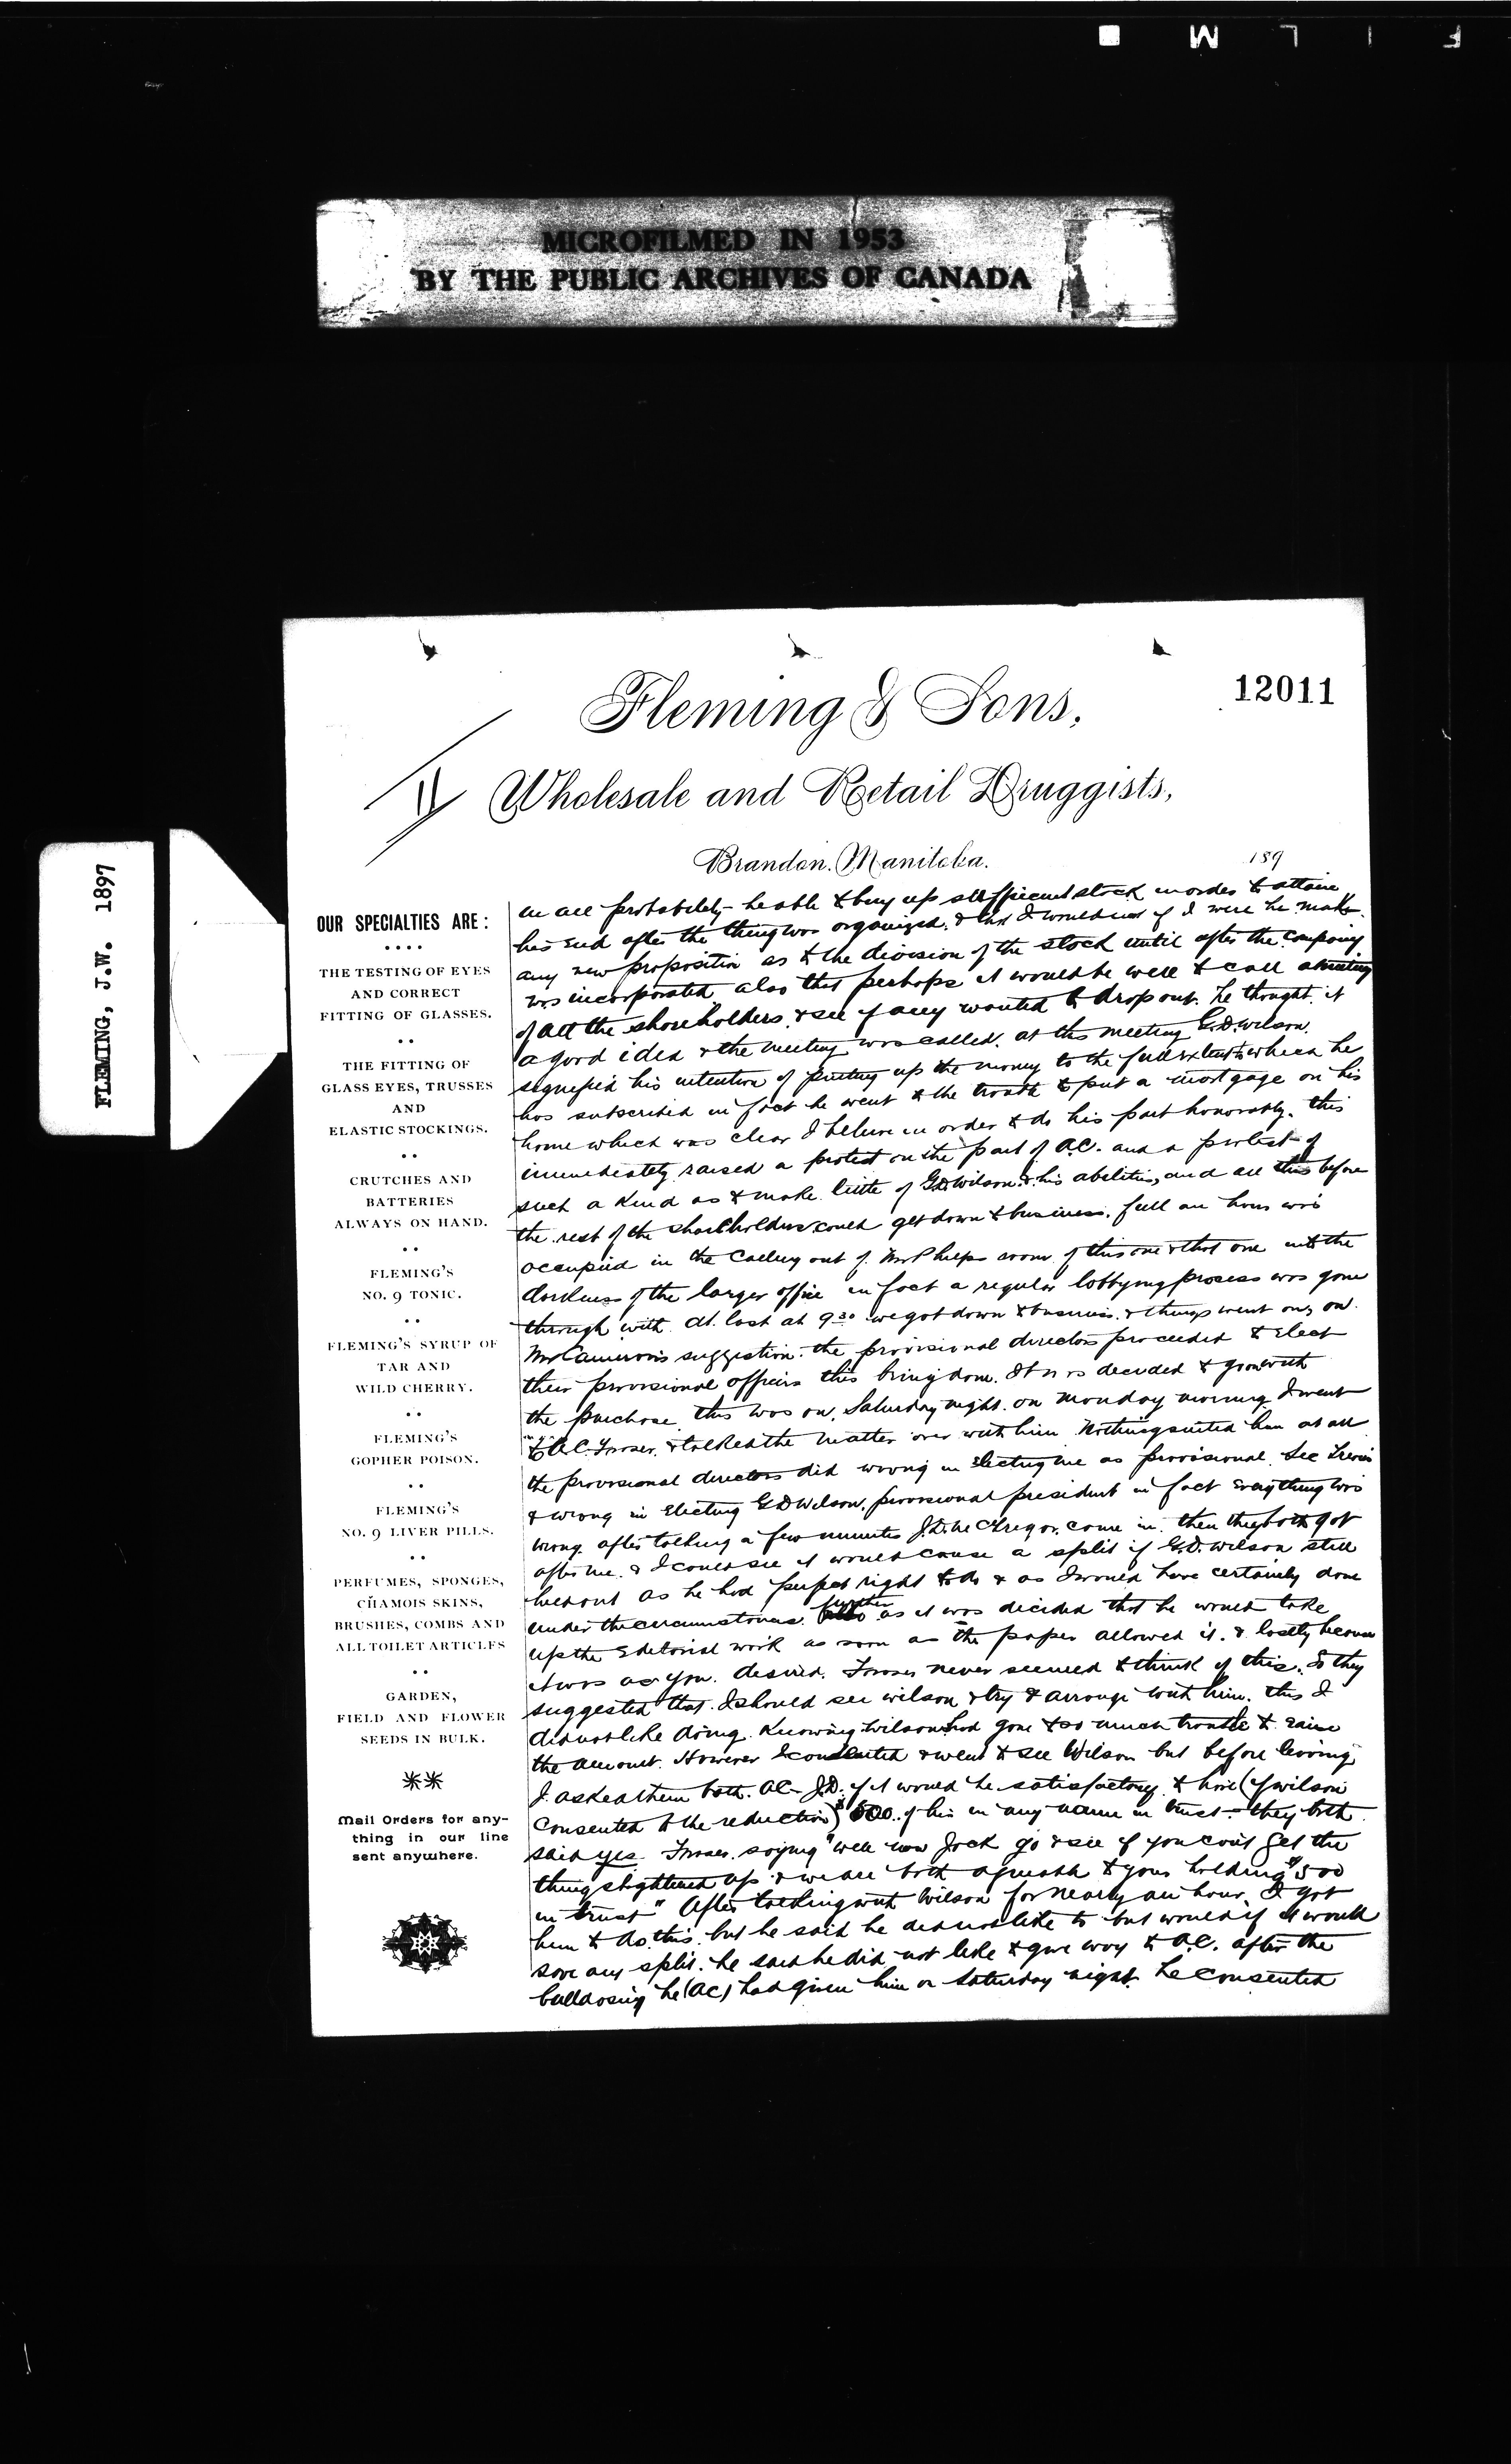 F I L M
MICROFILMED IN 1953
BY THE PUBLIC ARCHIVES OF CANADA
FLEMING, J.W. 1897
12011
Fleming & Sons,
Wholesale and Retail Druggists,
Brandon, Manitoba.
189
OUR SPECIALTIES ARE:
THE TESTING OF EYES
AND CORRECT
FITTING OF GLASSES.
THE FITTING OF
GLASS EYES, TRUSSES
AND
ELASTIC STOCKINGS.
CRUTCHES AND
BATTERIES
ALWAYS ON HAND.
FLEMING'S
NO. 9 TONIC.
FLEMING'S SYRUP OF
TAR AND
WILD CHERRY.
FLEMING'S
GOPHER POISON.
FLEMING'S
NO. 9 LIVER PILLS.
PERFUMES, SPONGES,
CHAMOIS SKINS,
BRUSHES, COMBS AND
ALL TOILET ARTICLES
GARDEN,
FIELD AND FLOWER
SEEDS IN BULK.
Mail Orders for any-
thing in our line
sent anywhere.
in all probability be able to buy up sufficient stock in order to attain
his end after the thing was organized, & that I would not if I were he make
any new proposition as to the division of the stock until after the company
was incorporated also that perhaps it would be well to call a meeting
of all the shareholders & see if any wanted to drop out. he thought it
a good idea & the meeting was called. at this meeting G.D. Wilson
signified his intention of putting up the money to the full extent to which he
has subscribed in fact he went to the trouble to put a mortgage on his
home which was clear I believe in order to do his part honorably. this
immediately raised a protest on the part of A.C. and a protest of
such a kind as to make little of G.D. Wilson & his abilities, and all this before
the rest of the shareholders could get down to business. full an hour was
occupied in the calling out of Mr Phelps room of this one & that one into the
darkness of the larger office in fact a regular lobbying process was gone
through with. At last at 9 30 we got down to business & things went on, on
Mr Cameron's suggestion the provisional directors proceeded to elect
their provisional officers this being done. It was decided to go on with
the purchase this was on Saturday night. on Monday morning I went
to A.C. Fraser & talked the matter over with him Nothing suited him at all
the provisional directors did wrong in electing me as provisional Sec Treas
& wrong in electing G D Wilson provisional president in fact everything was
wrong after talking a few minutes J.D. McGregor came in. then they both got
after me & I could see it would cause a split if G.D. Wilson still
held out as he had perfect right to do & as I would have certainly done
under the circumstances. further as it was decided that he would take
up the Editorial work as soon as the paper allowed it. & lastly because
it was as you desired. Fraser never seemed to think of this. So they
suggested that I should see Wilson & try & arrange with him. this I
did not like doing knowing Wilson had gone to so much trouble to raise
the amount. However I consented & went to see Wilson but before leaving
I asked them both AC - J.D. if it would be satisfactory to have (if Wilson
consented to the reduction) $500. of his in my name in trust - they both
said yes Fraser saying "well now Jock go & see if you can't get the
thing straightened up & we are both agreeable to your holding $500
in trust" After talking with Wilson for nearly an hour, I got
him to do this but he said he did not like to but would if it would
save any split. he said he did not like to give way to A.C. after the
bulldosing he (AC) had given him on Saturday night. he consented